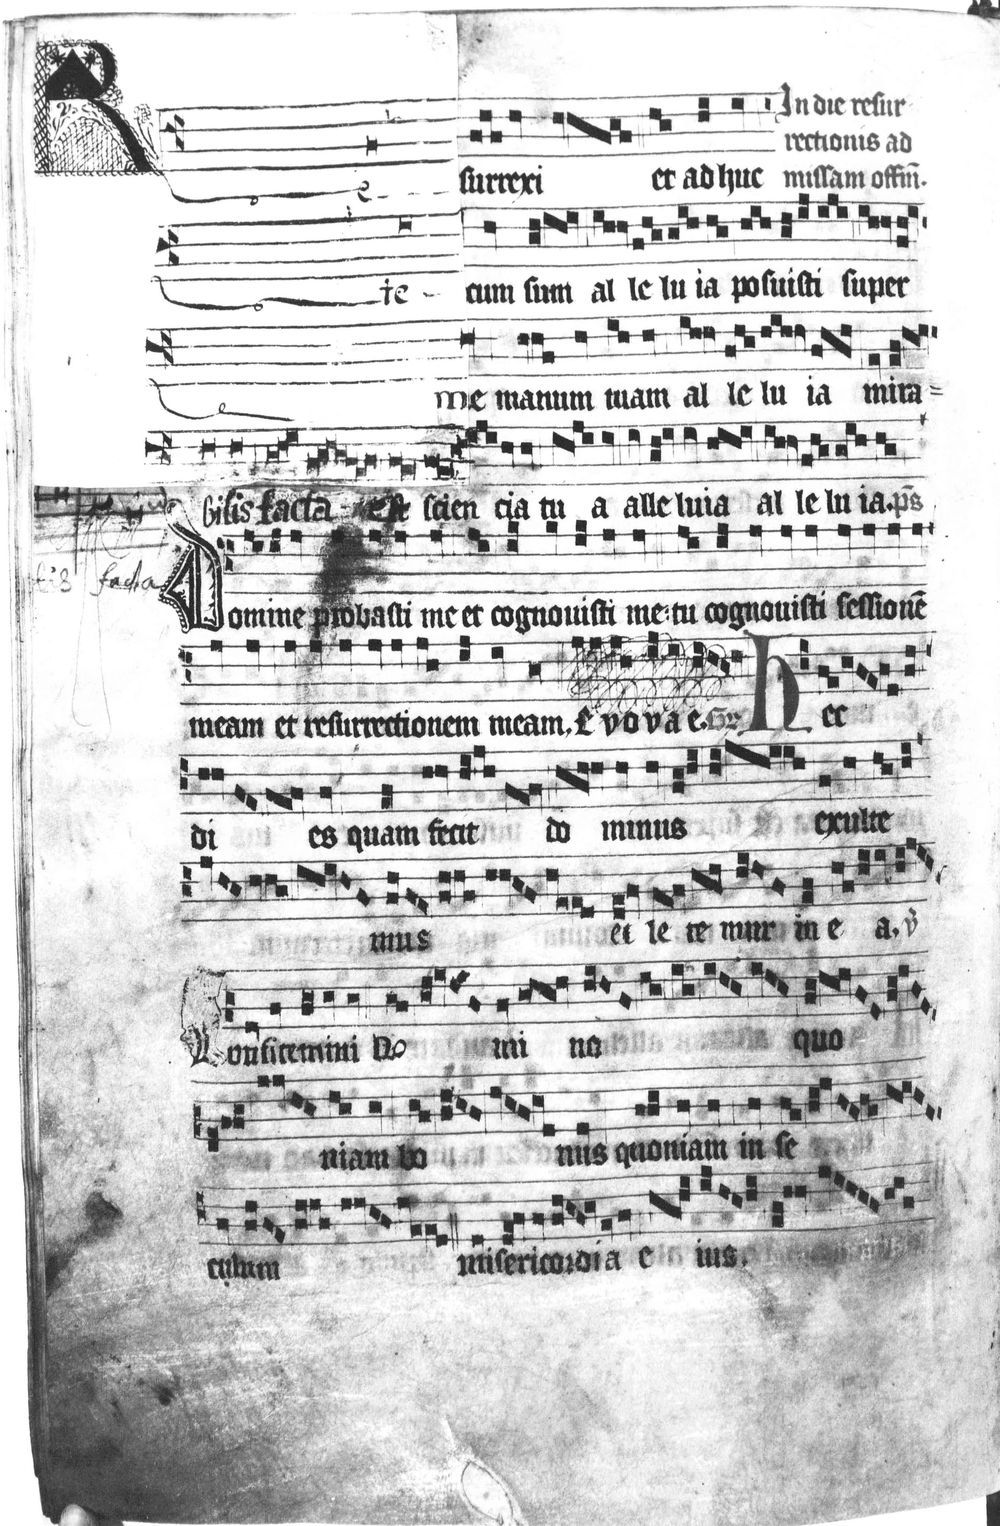 R
In die resur
rectionis ad
e surrexi et ad huc missam offiñ.
te cum sum al le lu ia posuisti super
me manum tuam al le lu ia mira=
bilis facta est scien cia tu a alleluia al le lu ia. ps̄
tis facta
Domine probasti me et cognouisti me: tu cognouisti sessionē
meam et resurrectionem meam. E v o v a e. Gr. Hec
di es quam fecit do minus exulte
mus et le te mur in e a. v̄
Confitemini do mi no quo
niam bo nus quoniam in se
culum misericordia e ius.